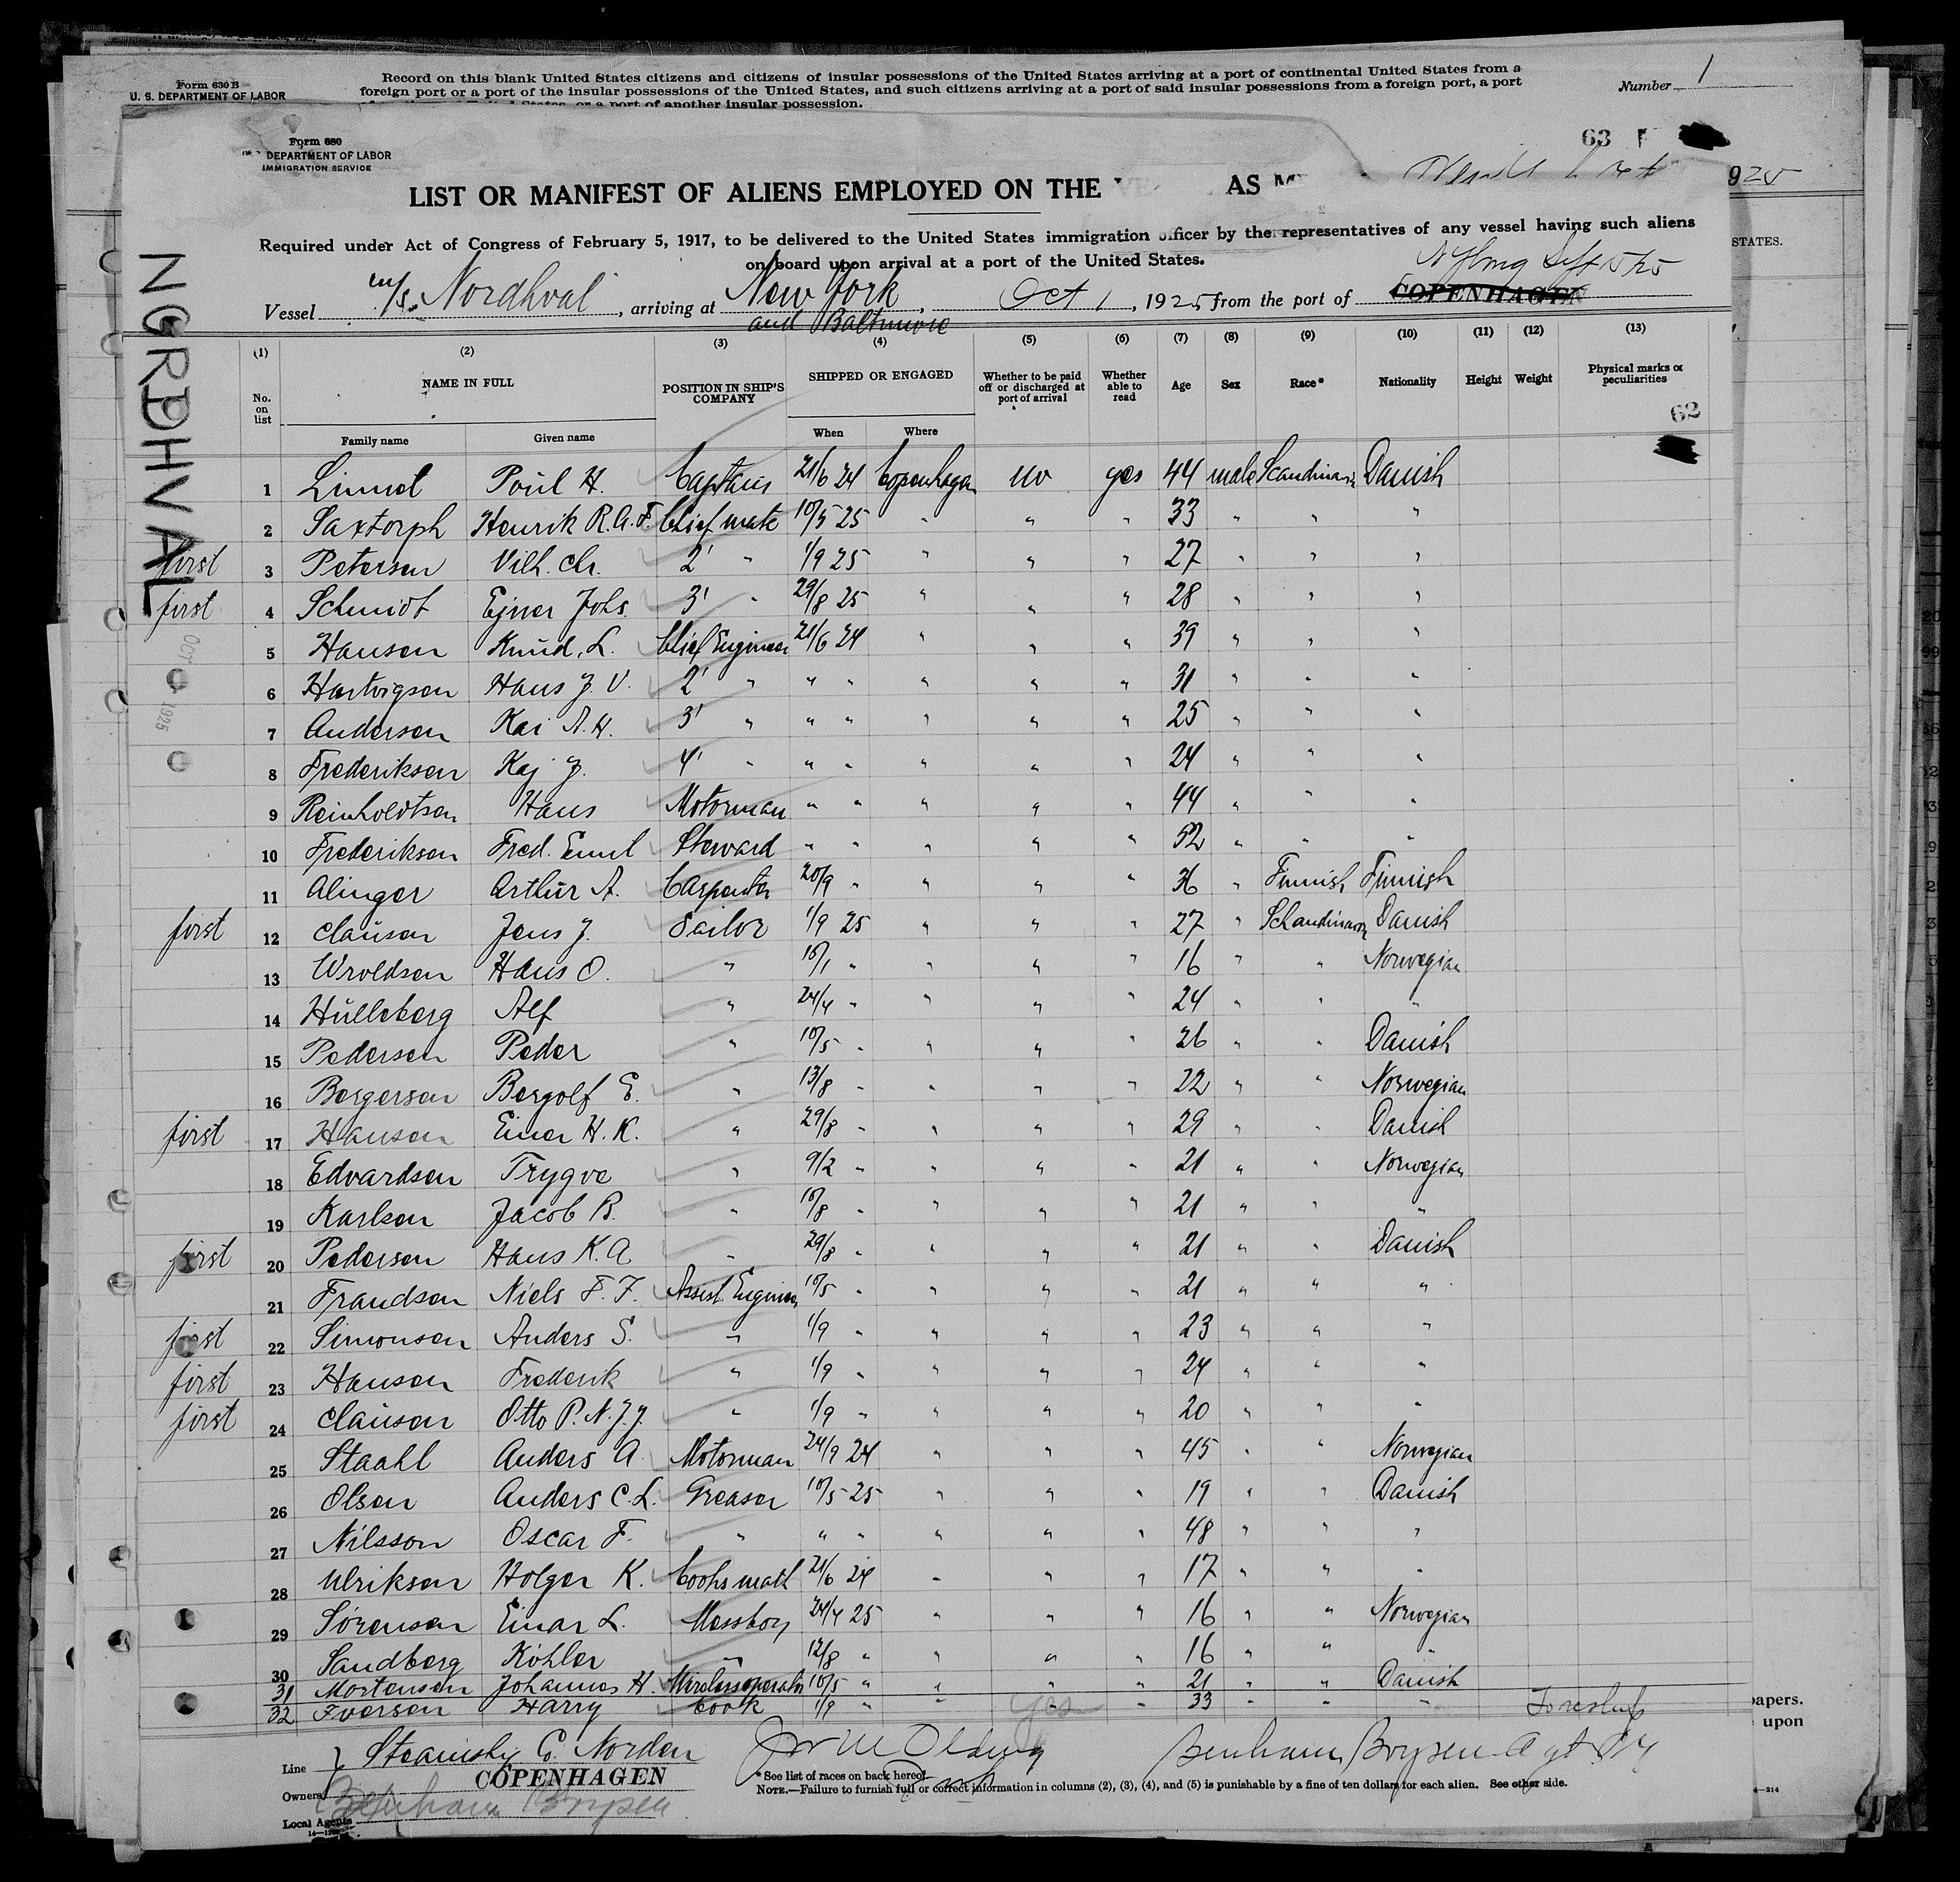 Form 630 B
U. S. DEPARTMENT OF LABOR
Record on this blank United States citizens and citizens of insular possessions of the United States arriving at a port of continental United States from a
foreign port or a port of the insular possessions of the United States, and such citizens arriving at a port of said insular possessions from a foreign port, a port
or a port of another insular possession.
Number 1
Form 680
DEPARTMENT OF LABOR
IMMIGRATION SERVICE
63
LIST OR MANIFEST OF ALIENS EMPLOYED ON THE VE AS M
925
Required under Act of Congress of February 5, 1917, to be delivered to the United States immigration officer by the representatives of any vessel having such aliens
on board upon arrival at a port of the United States.
STATES.
Vessel m/s. Nordhval, arriving at New York, Oct 1, 1925 from the port of COPENHAGEN
and Baltimore
NORDHVAL
OCT 1925
(1) (2) (3) (4) (5) (6) (7) (8) (9) (10) (11) (12) (13)
No. on list NAME IN FULL POSITION IN SHIP'S COMPANY SHIPPED OR ENGAGED Whether to be paid off or discharged at port of arrival Whether able to read Age Sex Race* Nationality Height Weight Physical marks or peculiarities
Family name Given name When Where
62
1 Linnet Poul H. Captain 21/6 24 Copenhagen no yes 44 male Scandinavia Danish
2 Saxtorph Henrik R.A.F. Chief mate 10/5 25 " " " 33 " " "
first 3 Petersen Vilh. Chr. 2' " 1/9 25 " " " 27 " " "
first 4 Schmidt Ejner Johs. 3' " 29/8 25 " " " 28 " " "
5 Hansen Knud. L. Chief Engineer 21/6 24 " " " 39 " " "
6 Hartvigsen Hans J. V. 2' " " " " " " 31 " " "
7 Andersen Kai A.H. 3' " " " " " " 25 " " "
8 Frederiksen Kaj J. 4' " " " " " " 24 " " "
9 Reinholdtsen Hans Motorman " " " " " 44 " " "
10 Frederiksen Fred. Emil Steward " " " " " 52 " " "
11 Alinger Arthur A. Carpenter 20/9 " " " " 36 " Finnish Finnish
first 12 Clausen Jens J. Sailor 1/9 25 " " " 27 " Schandinavn Danish
13 Wroldsen Hans O. " 10/1 " " " " 16 " " Norwegian
14 Hülleberg Alf " 24/4 " " " " 24 " " "
15 Pedersen Peder " 10/5 " " " " 26 " " Danish
16 Bergersen Bergolf E. " 13/8 " " " " 22 " " Norwegian
first 17 Hansen Einer H. K. " 29/8 " " " " 29 " " Danish
18 Edvardsen Trygve " 9/2 " " " " 21 " " Norwegian
19 Karlsen Jacob B. " 10/8 " " " " 21 " " "
first 20 Pedersen Hans K. A " 29/8 " " " " 21 " " Danish
21 Frandsen Niels F. F. Assist. Engineer 10/5 " " " " 21 " " "
first 22 Simonsen Anders S. " 1/9 " " " " 23 " " "
first 23 Hansen Frederik " 1/9 " " " " 24 " " "
first 24 Clausen Otto P. N. J. J. " 1/9 " " " " 20 " " "
25 Staahl Anders A. Motorman 24/9 24 " " " 45 " " Norwegian
26 Olsen Anders C. L. Greaser 10/5 25 " " " 19 " " Danish
27 Nilsson Oscar F. " " " " " " 48 " " "
28 Ulriksen Holger K. Cooksmath 21/6 24 " " " 17 " " "
29 Sörensen Einar L. Messboy 24/4 25 " " " 16 " " Norwegian
30 Sandberg Köhler " 12/8 " " " " 16 " " "
31 Mortensen Johannes H. Wirelessoperator 10/5 " " " " 21 " " Danish
32 Iversen Harry Cook 1/9 " " yes " 33 " " "
papers.
upon
Line Steamship Co. Norden
Benham Boysen Agt NY
COPENHAGEN
Owners
Benham Boysen
Local Agents
* See list of races on back hereof.
NOTE.—Failure to furnish full or correct information in columns (2), (3), (4), and (5) is punishable by a fine of ten dollars for each alien. See other side.